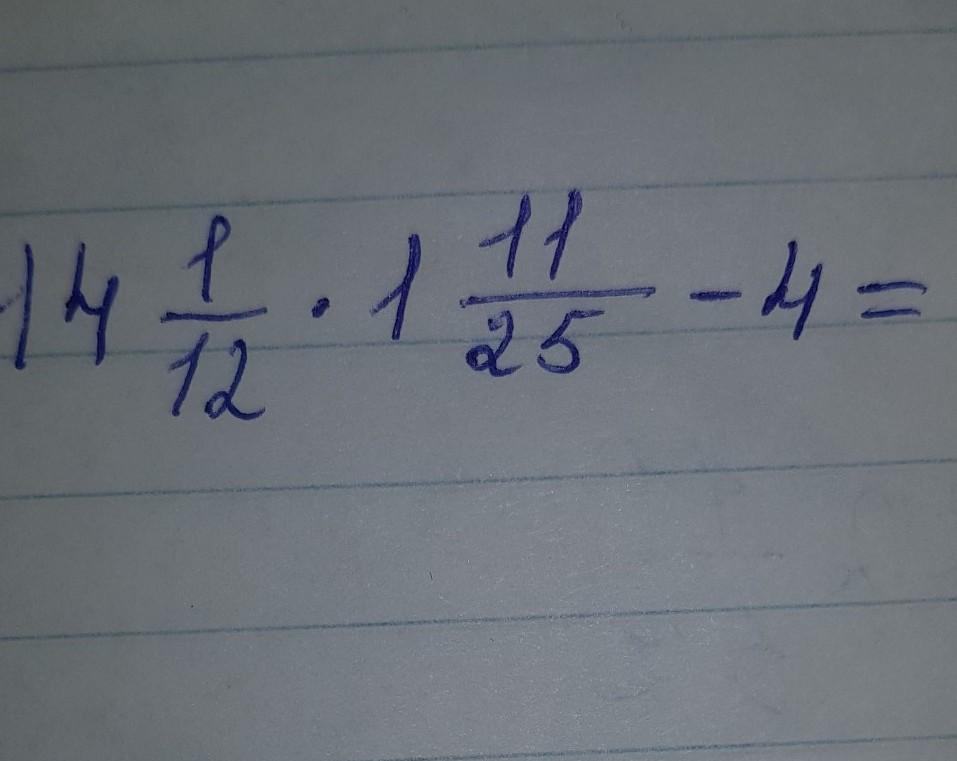 14 1/12 · 1 11/25 - 4 =